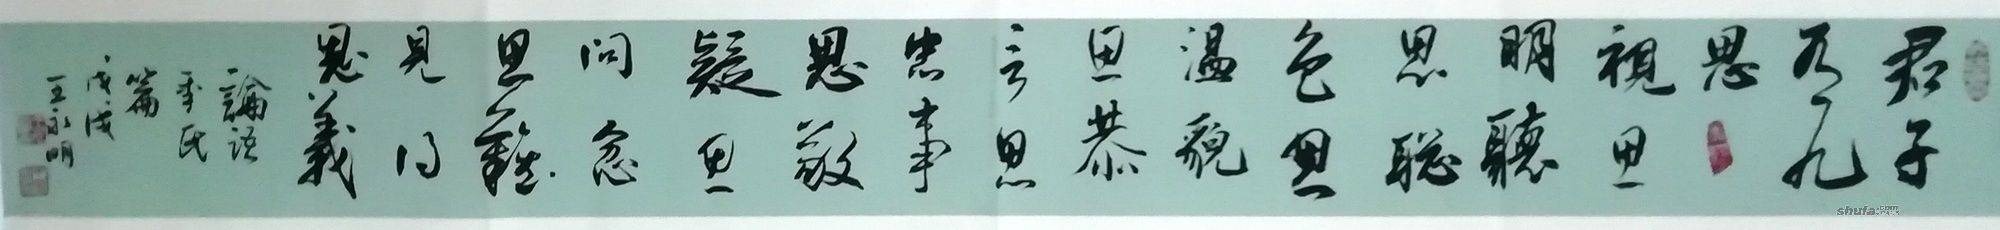 君子
有九
思
視思
明聽
思聰
色思
溫貌
思恭
言思
忠事
思敬
疑思
問忿
思難
見得
思義
論語
季氏
篇
戊戌
王永明
shufa